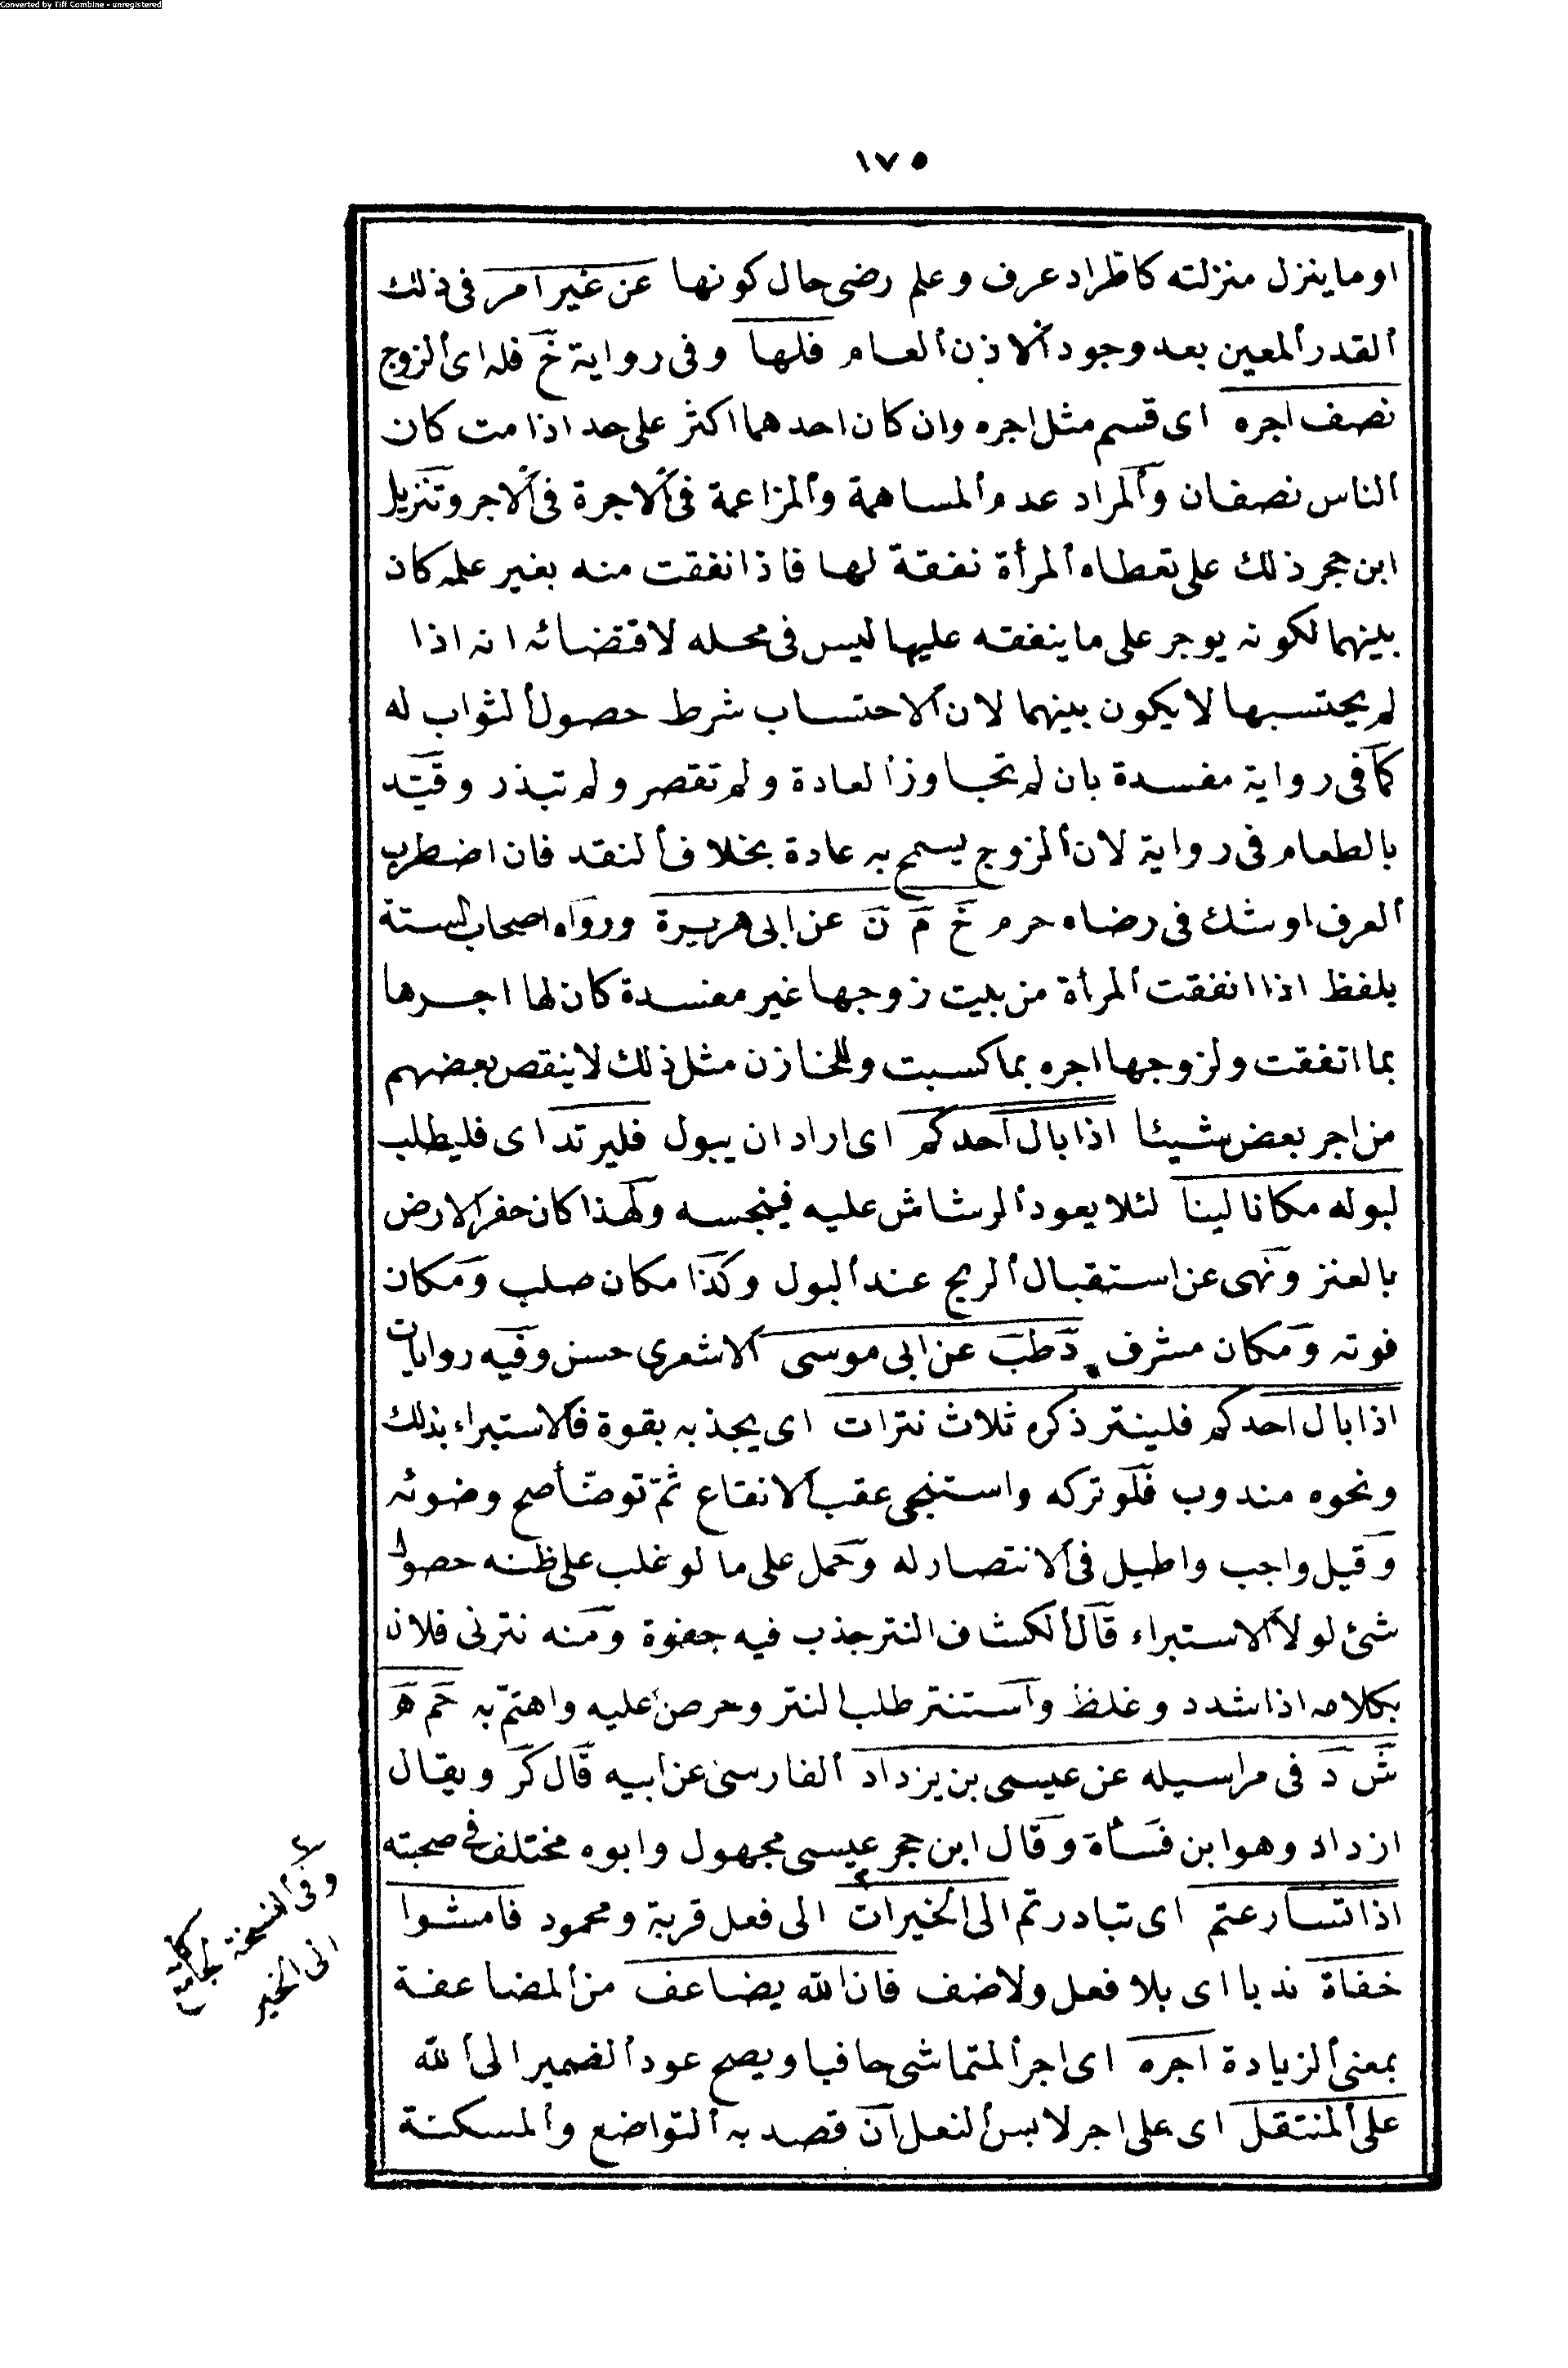 Converted by Tiff Combine - unregistered
١٧٥
او ما ينزل منزلته كاطراد عرف وعلم رضى حال كونها عن غير امر فى ذلك
القدر المعين بعد وجود الاذن العام فلها وفى رواية خ فله اى الزوج
نصف اجره اى قسم مثل اجره وان كان احدهما اكثر على حد اذا مت كان
الناس نصفان والمراد عدم المساهمة والمزاعمة فى الاجرة فى الاجر وتنزيل
ابن حجر ذلك على تعطاه المرأة نفقة لها فاذا نفقت منه بغير علمه كان
بينهما لكونه يوجر على ما ينفقه عليها ليس فى محله لاقتضائه انه اذا
لم يحتسبها لا يكون بينهما لان الاحتساب شرط حصول الثواب له
كما فى رواية مفسدة بان لم تجاوز العادة ولم تقصر ولم تبذر وقيّد
بالطعام فى رواية لان الزوج يسمح به عادة بخلاف النقد فان اضطرب
العرف او شك فى رضاه حرم خ م ن عن ابى هريرة ورواه اصحاب الستة
بلفظ اذا انفقت المرأة من بيت زوجها غير مفسدة كان لها اجرها
بما اتفقت ولزوجها اجره بما كسبت وللخازن مثل ذلك لا ينقص بعضهم
من اجر بعض شيئا اذا بال احدكم اى اراد ان يبول فليرتد اى فليطلب
لبوله مكانا لينا لئلا يعود الرشاش عليه فينجسه ولهذا كان حفر الارض
بالعنز ونهى عن استقبال الريح عند البول وكذا مكان صلب ومكان
فوته ومكان مشرف د طب عن ابى موسى الاشعرى حسن وفيه روايات
اذا بال احدكم فلينتر ذكره ثلاث نترات اى يجذبه بقوة فالاستبراء بذلك
ونحوه مندوب فلو تركه واستنجى عقب الانقاع ثمّ توضّأ صح وضوئه
وقيل واجب واطيل فى الانتصار له وحمل على ما لو غلب على ظنه حصول
شئ لولا الاستبراء قال الكشاف النتر جذب فيه جفوة ومنه نترنى فلان
بكلامه اذا شدد وغلظ واستنتر طلب النتر وحرص عليه واهتمّ به حم ه
ش د فى مراسيله عن عيسى بن يزداد الفارسى عن ابيه قال كر ويقال
ازداد وهو ابن فسأة وقال ابن حجر عيسى مجهول وابوه مختلف فى صحبته
اذا تسارعتم اى تبادرتم الى الخيرات الى فعل قربة ومحمود فامشوا
خفاة ندبا اى بلا فعل ولا ضف فان الله يضاعف من المضاعفة
بمعنى الزيادة اجره اى اجر المتماشى حافيا ويصح عود الضمير الى الله
على المنتقل اى على اجر لابس النعل ان قصد به التواضع والمسكنة
وفى النسخة
الى الخير